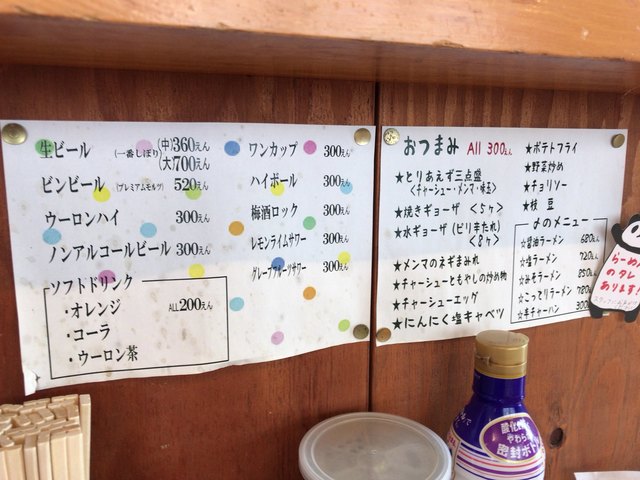 生ビール (一番しぼり) (中)360えん
(大)700えん
ビンビール (プレミアムモルツ) 520えん
ウーロンハイ 300えん
ノンアルコールビール 300えん
ソフトドリンク
・オレンジ
・コーラ
・ウーロン茶
ALL200えん
ワンカップ 300えん
ハイボール 300えん
梅酒ロック 300えん
レモンライムサワー 300えん
グレープフルーツサワー 300えん
おつまみ All 300えん
★とりあえず三点盛
(チャーシュー・メンマ・味玉)
★焼きギョーザ 〈5ヶ〉
★水ギョーザ (ピリ辛たれ)
〈8ヶ〉
★メンマのネギまみれ
★チャーシューともやしの炒め物
★チャーシューエッグ
★にんにく塩キャベツ
★ポテトフライ
★野菜炒め
★チョリソー
★枝豆
〆のメニュー
☆醤油ラーメン 680えん
☆塩ラーメン 720えん
☆みそラーメン 850えん
☆こってりラーメン 780えん
☆半チャーハン 300
らーめん
のタレ
あります!
やわら
密封ボトル